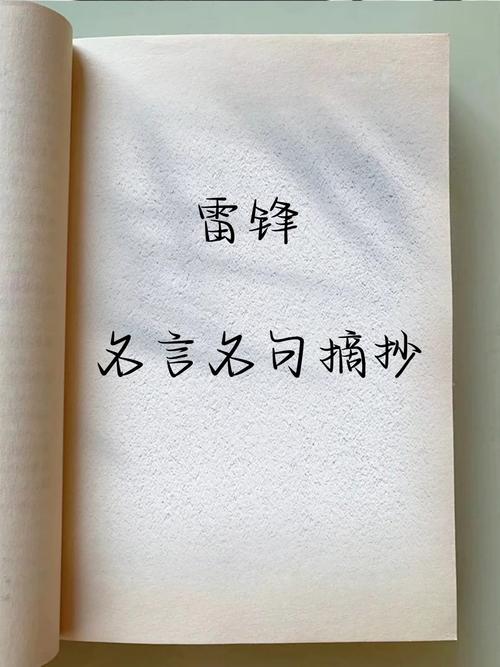 雷锋
名言名句摘抄